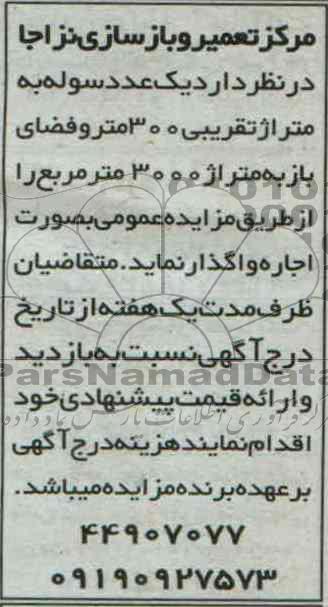 مرکز تعمیر و بازسازی نزاجا
در نظر دارد یک عدد سوله به
متراژ تقریبی ۳۰۰ متر و فضای
باز به متراژ ۳۰۰۰ متر مربع را
از طریق مزایده عمومی بصورت
اجاره واگذار نماید. متقاضیان
ظرف مدت یک هفته از تاریخ
درج آگهی نسبت به بازدید
ParsNamadData
و ارائه قیمت پیشنهادی خود
اقدام نمایند هزینه درج آگهی
بر عهده برنده مزایده میباشد.
۴۴۹۰۷۰۷۷
۰۹۱۹۰۹۲۷۵۷۳